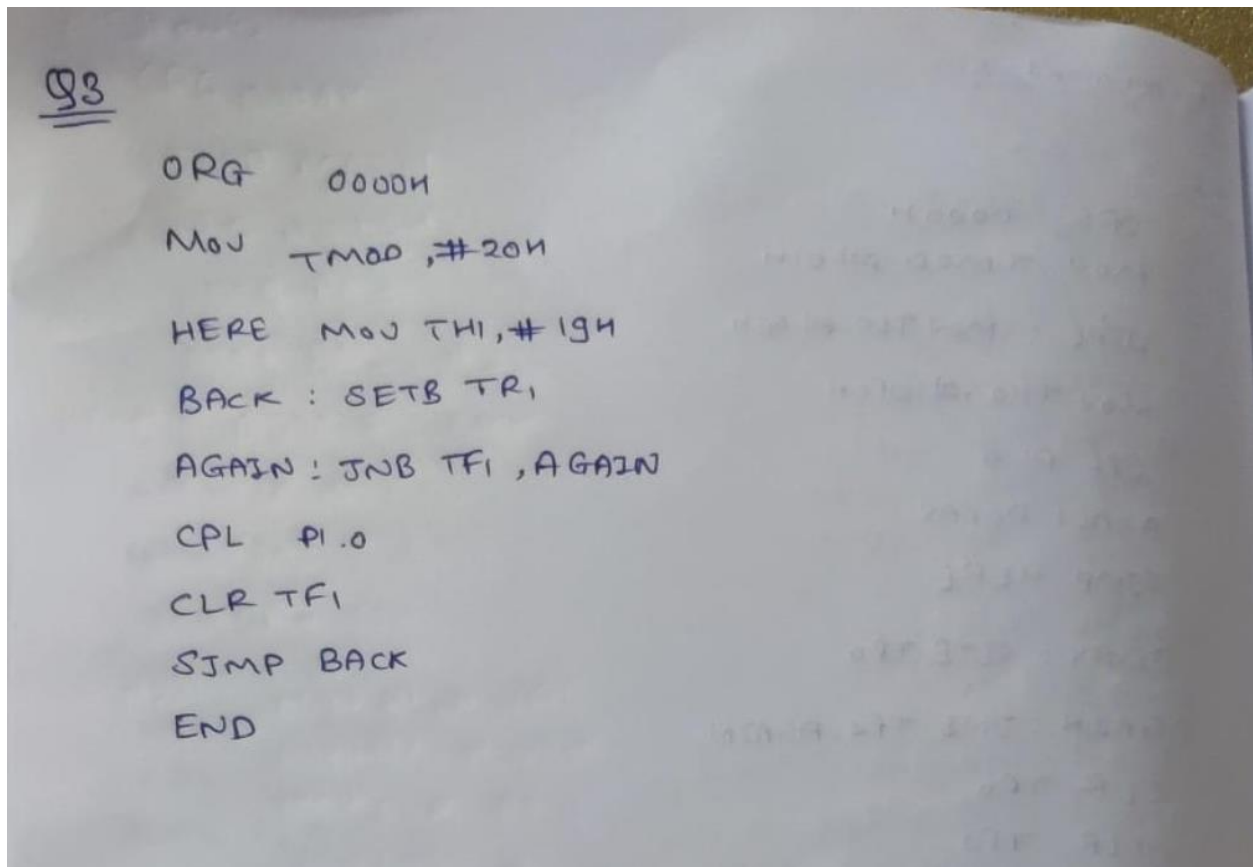 Q3
ORG 0000H
MOV TMOD, #20H
HERE MOV TH1, #19H
BACK : SETB TR1
AGAIN : JNB TF1, AGAIN
CPL P1.0
CLR TF1
SJMP BACK
END